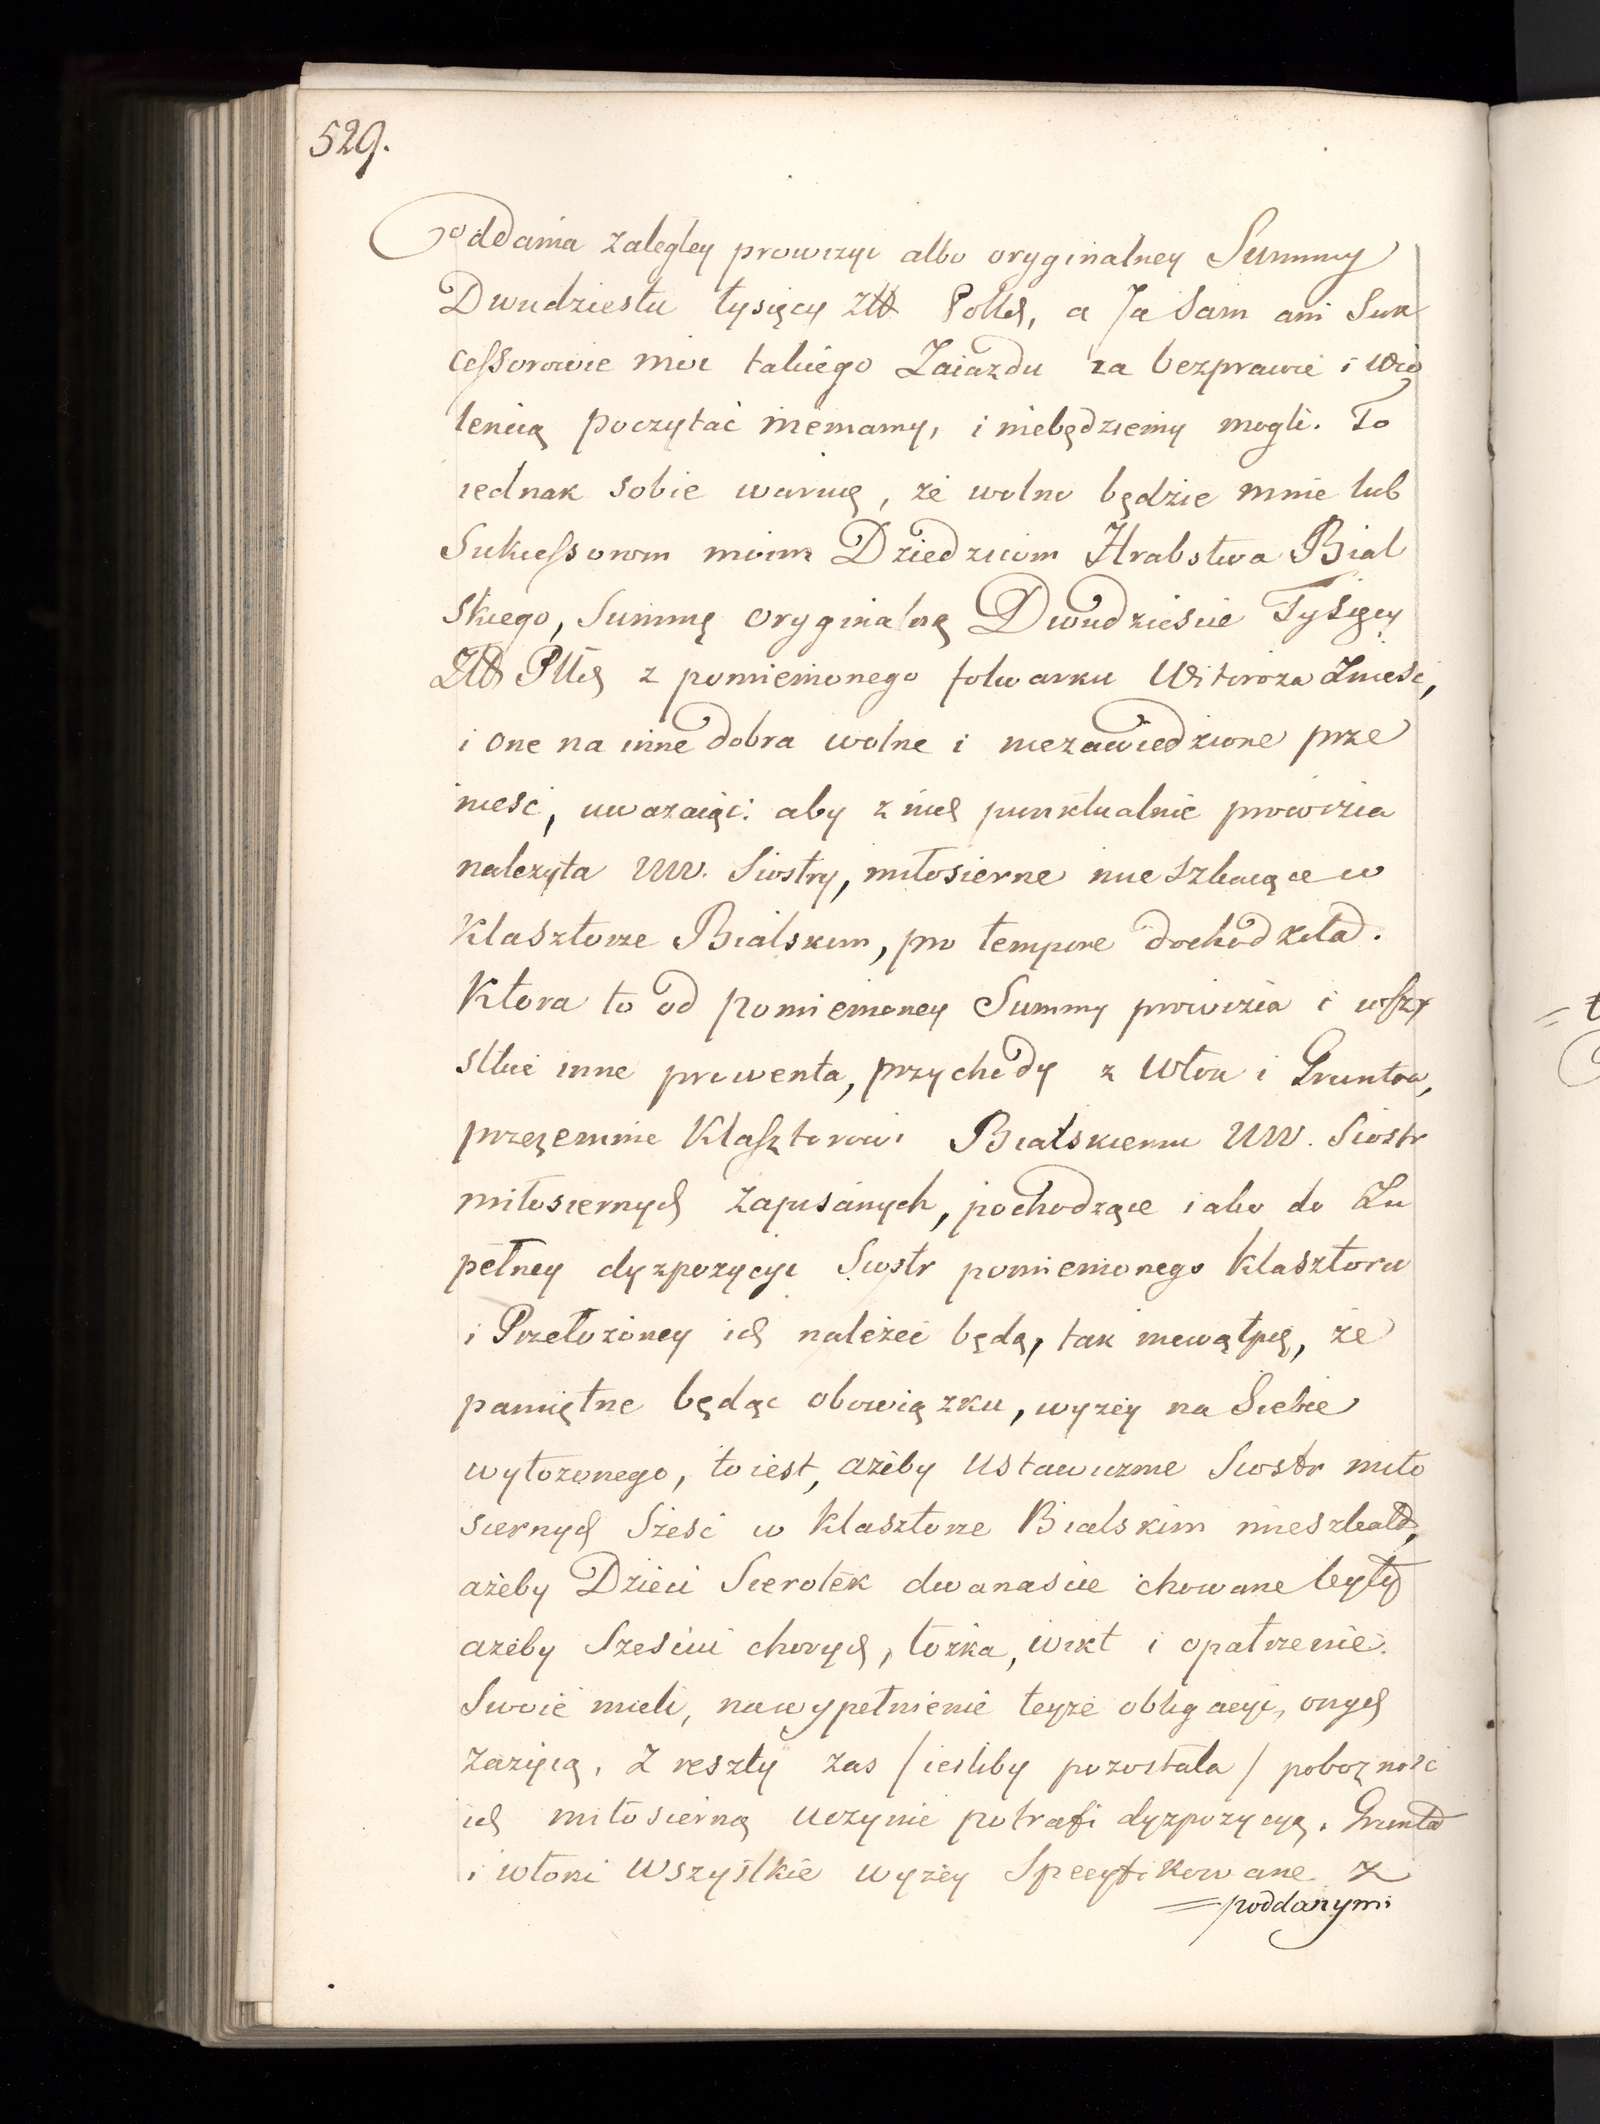 529.
oddania zaległey prowizyi albo oryginalney Summy
Dwudziestu tysięcy Złł Pollch, a Ja Sam ani Suk
cessorowie moi takiego Zaiazdu za bezprawie i wio
lencią poczytać niemamy, i niebędziemy mogli. To
iednak sobie waruię, że wolno będzie mnie lub
Sukcessorom moim Dziedzicom Hrabstwa Bial
skiego, Summę oryginalną Dwudzieście Tysięcy
Złł Pllch z pomienionego folwarku Witoroza Znieść,
i one na inne dobra wolne i niezawiedzione prze
nieść, uważaiąc: aby z nich punktualnie prowizia
należyta WW. Siostry, miłosierne mieszkaiące w
Klasztorze Bialskim, pro tempore dochodziła.
Ktora to od pomienioney Summy prowizia i wszy
stkie inne prowenta, przychody z Włok i Gruntow,
przezemnie Klasztorowi Bialskiemu WW. Siostr
miłosiernych zapisanych, pochodzące iako do Zu
pełney dyzpozycyi Siostr pomienionego Klasztoru
i Przełożoney ich należeć będą, tak niewątpię, że
pamiętne będąc obowiązku, wyżey na Siebie
wyłożonego, toiest, ażeby ustawicznie Siostr miło
siernych Sześć w Klasztorze Bialskim mieszkało,
ażeby Dzieci Sierotek dwanaście chowane były
ażeby Sześciu chorych, łożka, wikt i opatrzenie.
Swoie mieli, nawypełnienie teyże obligacyi, onych
zażyią, Z reszty zas /iesliby pozostała/ pobożność
ich miłosierną uczynic potrafi dyzpozycyą. Grunta
i włoki wszystkie wyżey Specyfikowane z
=poddanymi